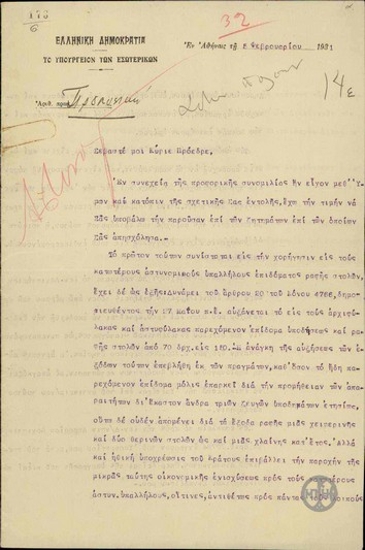 32
ΕΛΛΗΝΙΚΗ ΔΗΜΟΚΡΑΤΙΑ
ΤΟ ΥΠΟΥΡΓΕΙΟΝ ΤΩΝ ΕΣΩΤΕΡΙΚΩΝ
Ἐν Ἀθήναις τῇ Φεβρουαρίου 1931
14ε
Ἀριθ. πρωτ.
Σεβαστέ μοι Κύριε Πρόεδρε,
Ἐν συνεχείᾳ τῆς προφορικῆς συνομιλίας ἣν εἶχον μεθ' Ὑ-
μῶν καὶ κατόπιν τῆς σχετικῆς Σας ἐντολῆς, ἔχω τὴν τιμὴν νὰ
Σᾶς ὑποβάλω τὴν παροῦσαν ἐπὶ τῶν ζητημάτων ἐπὶ τῶν ὁποίων
Σᾶς ἀπησχόλησα.-
Τὸ πρῶτον τούτων συνίσταται εἰς τὴν χορήγησιν εἰς τοὺς
κατωτέρους ἀστυνομικοὺς ὑπαλλήλους ἐπιδόματος ραφῆς στολῶν,
ἔχει δὲ ὡς ἑξῆς: Δυνάμει τοῦ ἄρθρου 20 τοῦ Νόμου δημο-
σιευθέντος τὴν 27 Μαΐου π.ἔ. αὐξάνεται τὸ εἰς τοὺς ἀρχιφύ-
λακας καὶ ἀστυφύλακας παρεχόμενον ἐπίδομα ὑποδήσεως καὶ ρα-
φῆς στολῶν ἀπὸ 70 δρχ. εἰς 120.- Ἡ ἀνάγκη τῆς αὐξήσεως τῶν ἐ-
ξόδων τούτων ἐπεβλήθη ἐκ τῶν πραγμάτων, καθ' ὅσον τὸ ἤδη πα-
ρεχόμενον ἐπίδομα μόλις ἐπαρκεῖ διὰ τὴν προμήθειαν τῶν ἀπα-
ραιτήτων δι' ἕκαστον ἄνδρα τριῶν ζευγῶν ὑποδημάτων ἐτησίως,
οὕτω δὲ οὐδὲν ἀπομένει διὰ τὰ ἔξοδα ραφῆς μιᾶς χειμερινῆς
καὶ δύο θερινῶν στολῶν ὡς καὶ μιᾶς χλαίνης κατ' ἔτος. Ἀλλὰ
καὶ ἠθικὴ ὑποχρέωσις τοῦ Κράτους ἐπιβάλλει τὴν παροχὴν τῆς
μικρᾶς ταύτης οἰκονομικῆς ἐνισχύσεως πρὸς τοὺς
ἀστυν. ὑπαλλήλους, οἵτινες, ἀντιθέτως πρὸς πάντας